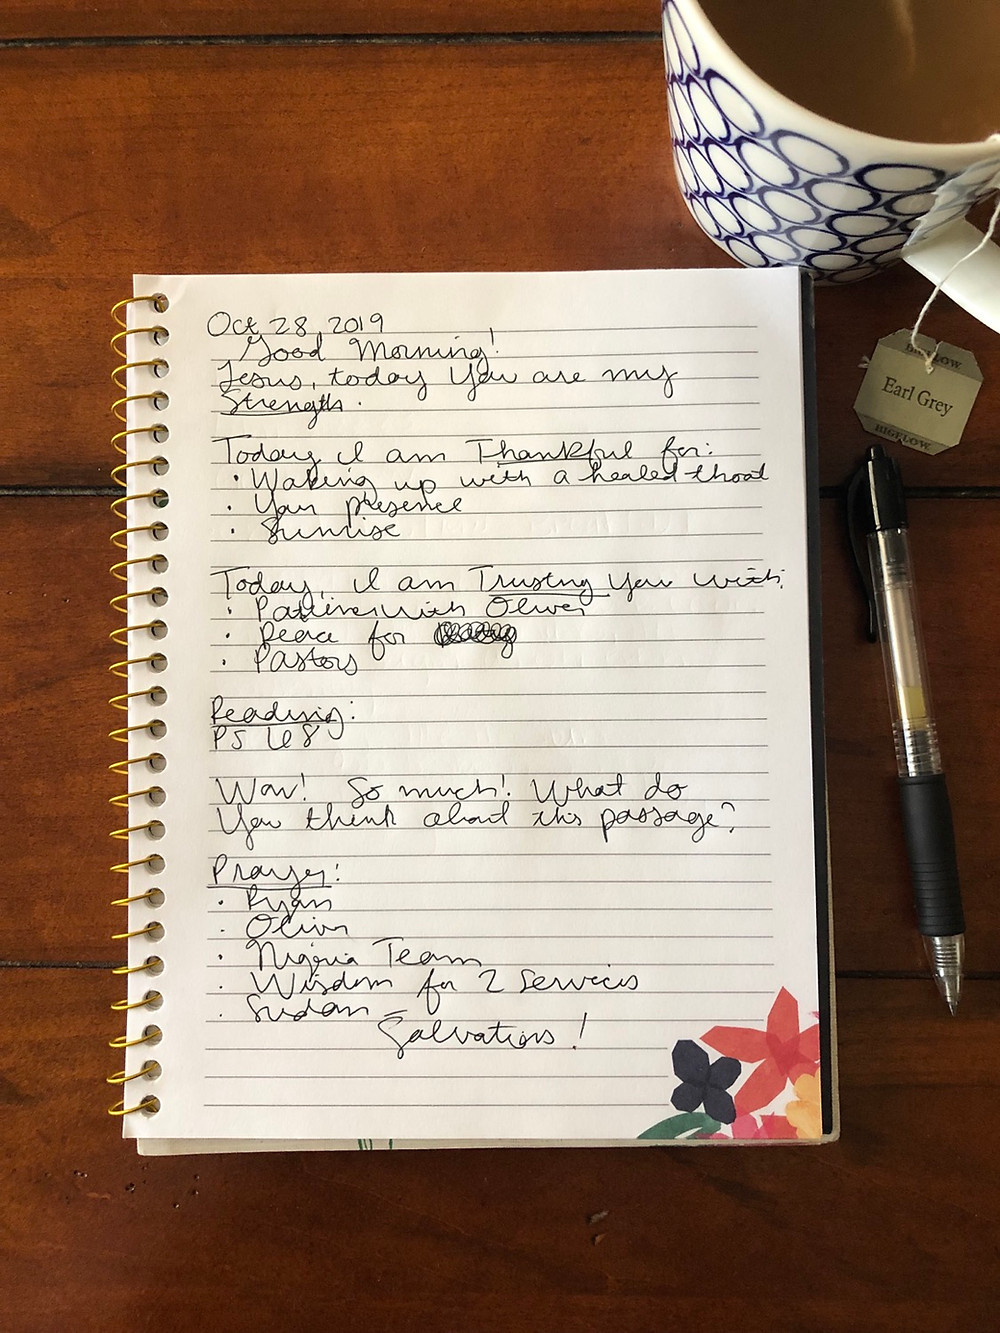 Oct 28, 2019
Good Morning!
Jesus, today You are my
Strength.
Today I am Thankful for:
· Waking up with a healed throat
· Your presence
· Sunrise
Today, I am Trusting You with:
· Patience with Oliver
· Peace for
· Pastors
Reading:
PS 68
Wow! So much! What do
You think about this passage?
Prayer:
· Ryan
· Oliver
· Nigeria Team
· Wisdom for 2 Services
· Sudan –
Salvations!
BIGELOW
Earl Grey
BIGELOW